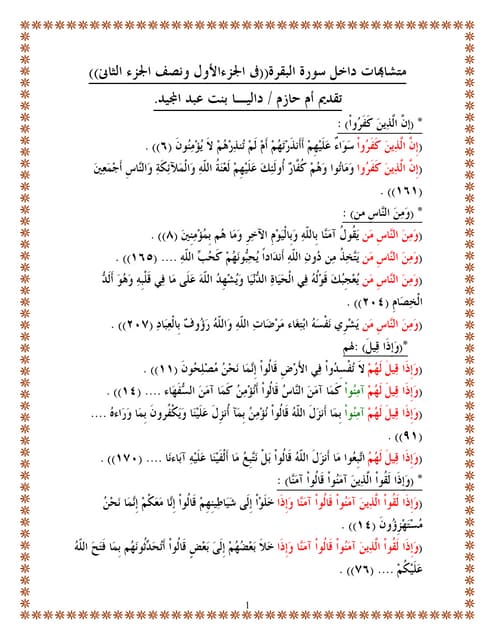 متشابهات داخل سورة البقرة((فى الجزءالأول ونصف الجزء الثانى))
تقديم أم حازم / داليـــا بنت عبد المجيد.
* (إِنَّ الَّذِينَ كَفَرُواْ) :
((إِنَّ الَّذِينَ كَفَرُواْ سَوَاءٌ عَلَيْهِمْ أَأَنذَرْتَهُمْ أَمْ لَمْ تُنذِرْهُمْ لاَ يُؤْمِنُونَ (٦)) .
((إِنَّ الَّذِينَ كَفَرُوا وَمَاتُوا وَهُمْ كُفَّارٌ أُولَئِكَ عَلَيْهِمْ لَعْنَةُ اللَّهِ وَالْمَلآئِكَةِ وَالنَّاسِ أَجْمَعِينَ
(١٦١)) .
* ((وَمِنَ النَّاسِ من) :
((وَمِنَ النَّاسِ مَن يَقُولُ آمَنَّا بِاللَّهِ وَبِالْيَوْمِ الآخِرِ وَمَا هُم بِمُؤْمِنِينَ (٨)) .
((وَمِنَ النَّاسِ مَن يَتَّخِذُ مِن دُونِ اللَّهِ أَندَاداً يُحِبُّونَهُمْ كَحُبِّ اللَّهِ .... (١٦٥)) .
((وَمِنَ النَّاسِ مَن يُعْجِبُكَ قَوْلُهُ فِي الْحَيَاةِ الدُّنْيَا وَيُشْهِدُ اللَّهَ عَلَى مَا فِي قَلْبِهِ وَهُوَ أَلَدُّ
الْخِصَامِ (٢٠٤)) .
((وَمِنَ النَّاسِ مَن يَشْرِي نَفْسَهُ ابْتِغَاء مَرْضَاتِ اللَّهِ وَاللَّهُ رَؤُوفٌ بِالْعِبَادِ (٢٠٧)) .
*((وَإِذَا قِيلَ) :لهم
((وَإِذَا قِيلَ لَهُمْ لاَ تُفْسِدُواْ فِي الأَرْضِ قَالُواْ إِنَّمَا نَحْنُ مُصْلِحُونَ (١١)) .
((وَإِذَا قِيلَ لَهُمْ آمِنُواْ كَمَا آمَنَ النَّاسُ قَالُواْ أَنُؤْمِنُ كَمَا آمَنَ السُّفَهَاء .... (١٤)) .
((وَإِذَا قِيلَ لَهُمْ آمِنُواْ بِمَا أَنزَلَ اللَّهُ قَالُواْ نُؤْمِنُ بِمَآ أُنزِلَ عَلَيْنَا وَيَكْفُرونَ بِمَا وَرَاءهُ ....
(٩١)) .
((وَإِذَا قِيلَ لَهُمُ اتَّبِعُوا مَا أَنزَلَ اللَّهُ قَالُواْ بَلْ نَتَّبِعُ مَا أَلْفَيْنَا عَلَيْهِ آبَاءنَا .... (١٧٠)) .
* ((وَإِذَا لَقُواْ الَّذِينَ آمَنُواْ قَالُواْ آمَنَّا) :
((وَإِذَا لَقُواْ الَّذِينَ آمَنُواْ قَالُواْ آمَنَّا وَإِذَا خَلَوْاْ إِلَى شَيَاطِينِهِمْ قَالُواْ إِنَّا مَعَكُمْ إِنَّمَا نَحْنُ
مُسْتَهْزِؤُونَ (١٤)) .
((وَإِذَا لَقُواْ الَّذِينَ آمَنُواْ قَالُواْ آمَنَّا وَإِذَا خَلاَ بَعْضُهُمْ إِلَىَ بَعْضٍ قَالُواْ أَتُحَدِّثُونَهُم بِمَا فَتَحَ اللَّهُ
عَلَيْكُمْ .... (٧٦)) .
1